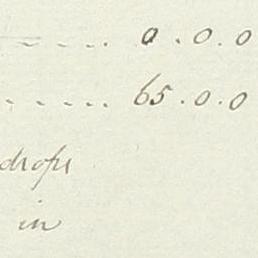 ..... 0.0.0
..... 65.0.0
drops
in